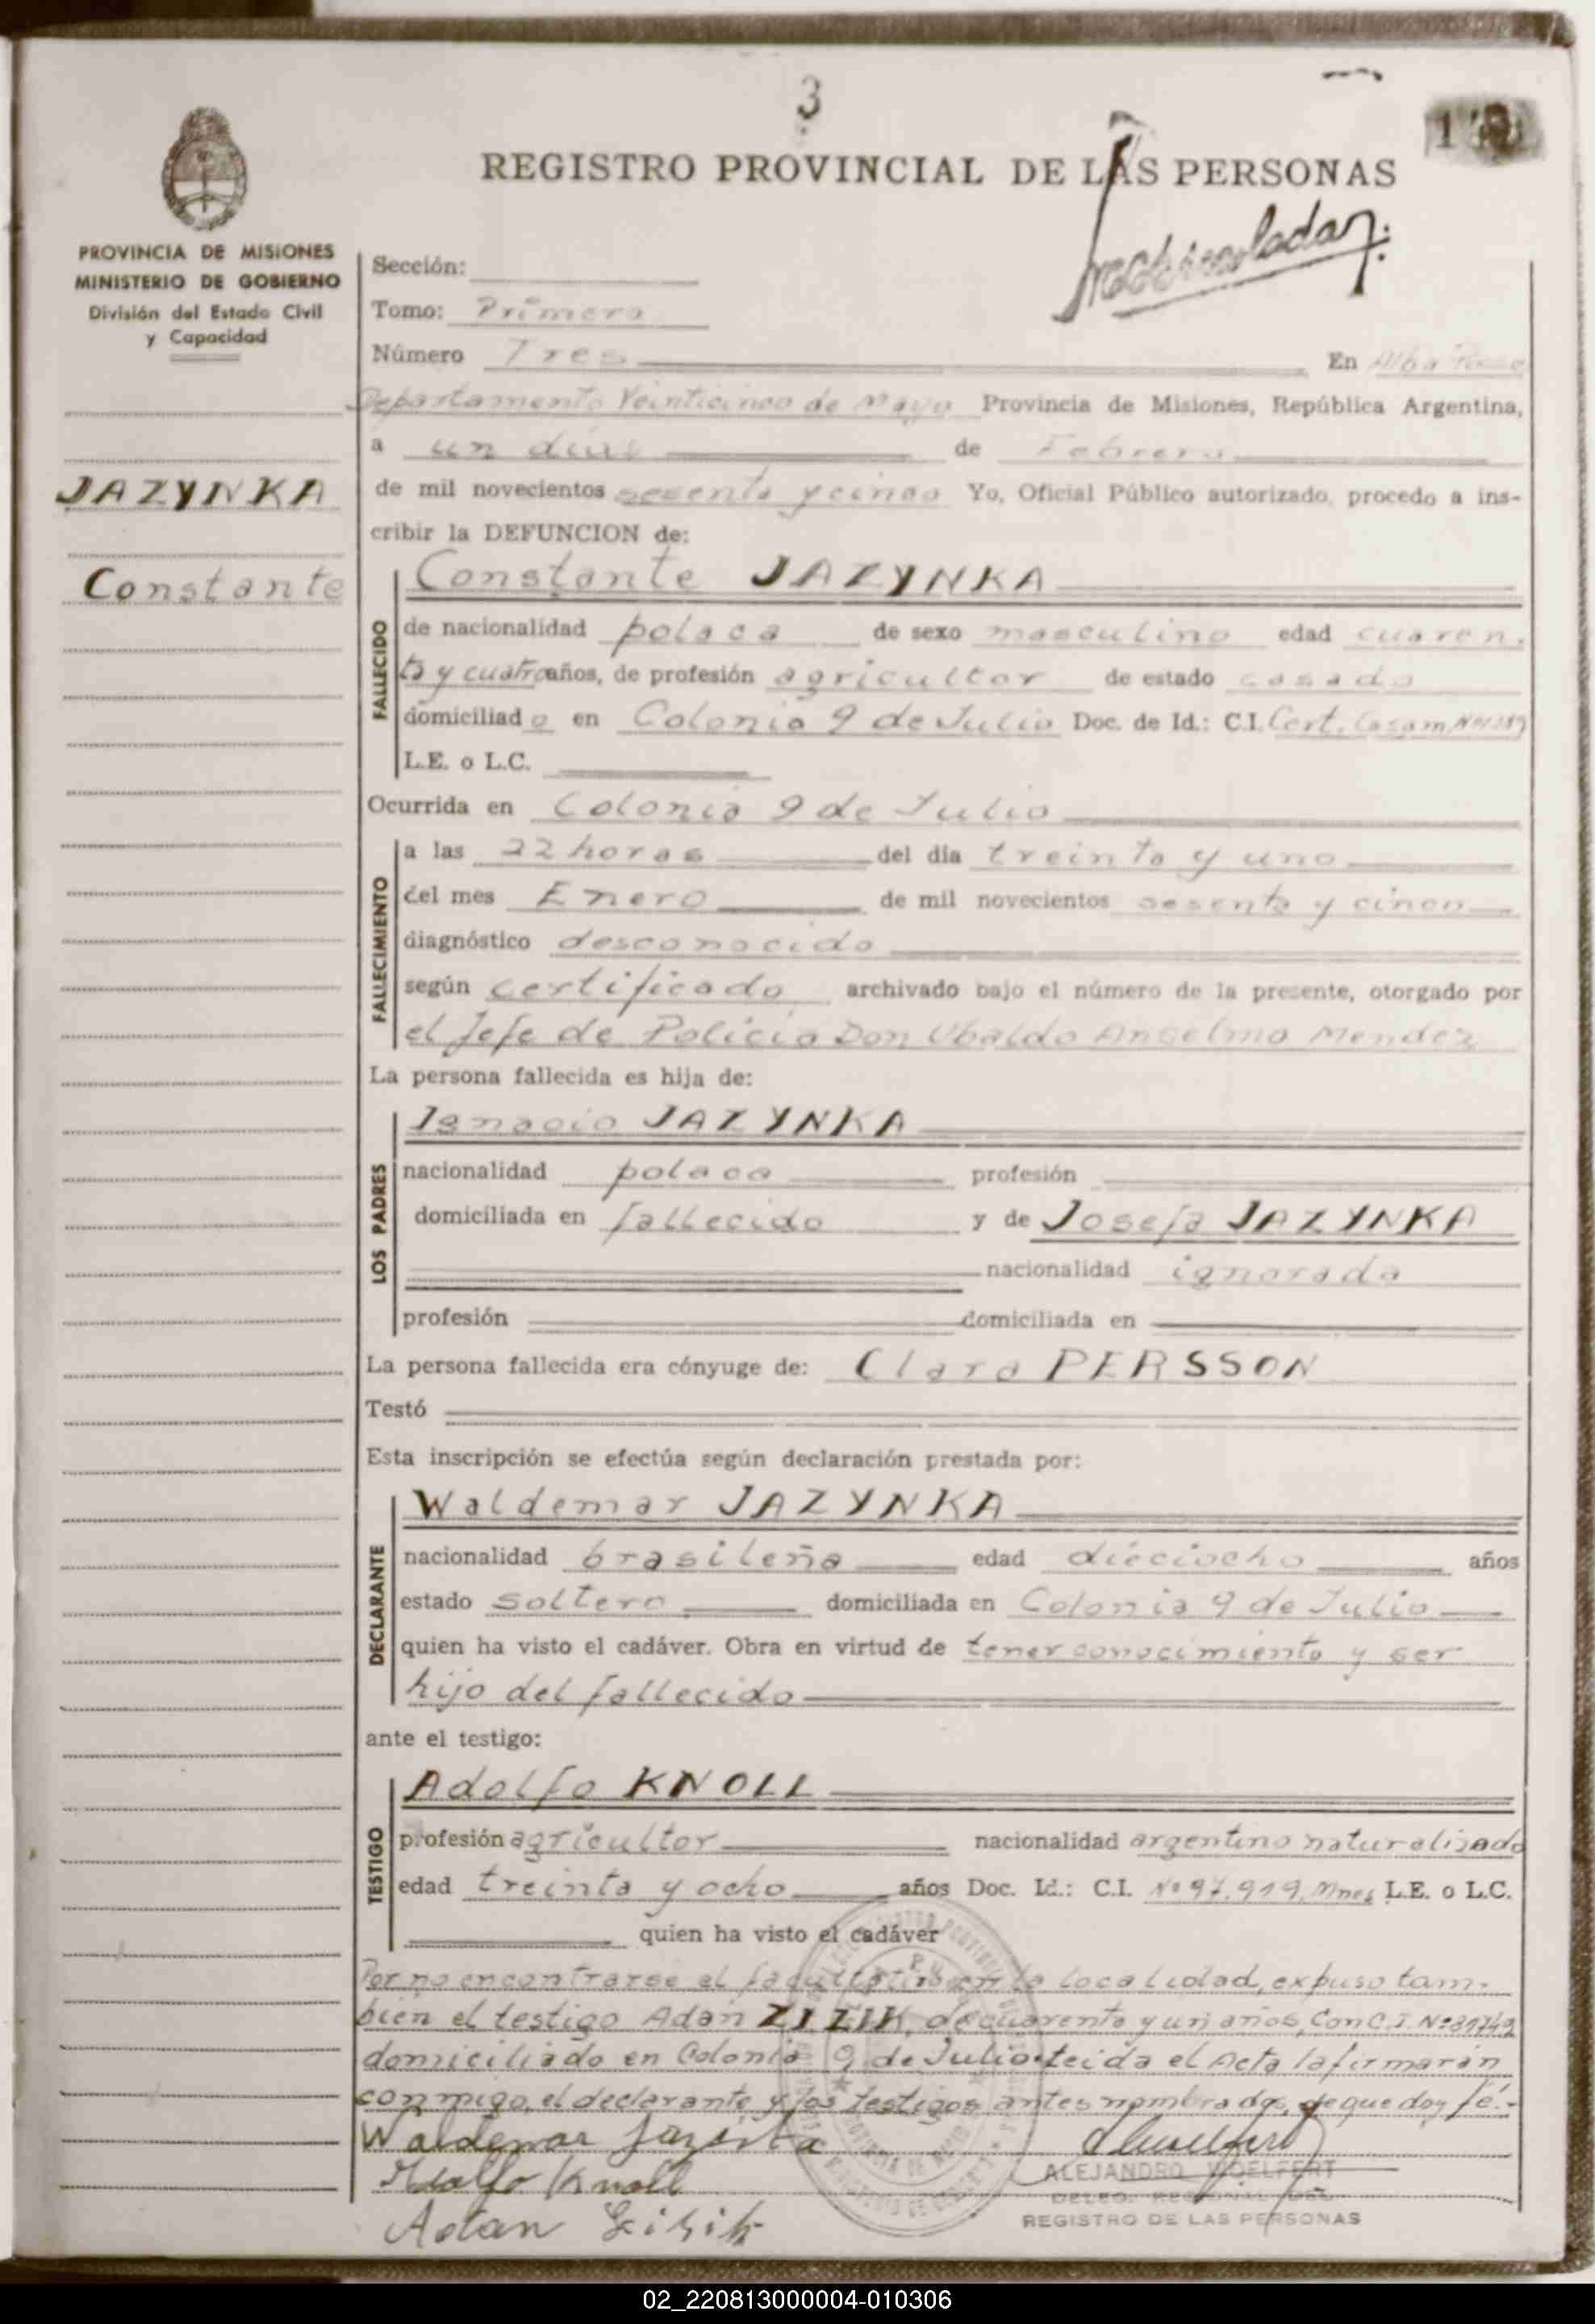 3
REGISTRO PROVINCIAL DE LAS PERSONAS
PROVINCIA DE MISIONES
MINISTERIO DE GOBIERNO
División del Estado Civil
y Capacidad
JAZYNKA
Constante
Sección:
Tomo: Primero
Número Tres En Alba Posse
Departamento Veinticinco de Mayo Provincia de Misiones, República Argentina,
a un días de Febrero
de mil novecientos sesenta y cinco Yo, Oficial Público autorizado, procedo a ins-
cribir la DEFUNCION de:
FALLECIDO
Constante JAZYNKA
de nacionalidad polaca de sexo masculino edad cuaren.
ta y cuatro años, de profesión agricultor de estado casado
domiciliado en Colonia 9 de Julio Doc. de Id.: C.I. Cert. Casam.
L.E. o L.C.
Ocurrida en Colonia 9 de Julio
FALLECIMIENTO
a las 22 horas del día treinta y uno
del mes Enero de mil novecientos sesenta y cinco
diagnóstico desconocido
según certificado archivado bajo el número de la presente, otorgado por
el Jefe de Policía Don Ubaldo Anselmo Mendez
La persona fallecida es hija de:
LOS PADRES
Ignacio JAZYNKA
nacionalidad polaca profesión
domiciliada en fallecido y de Josefa JAZYNKA
nacionalidad ignorada
profesión domiciliada en
La persona fallecida era cónyuge de: Clara PERSSON
Testó
Esta inscripción se efectúa según declaración prestada por:
DECLARANTE
Waldemar JAZYNKA
nacionalidad brasileña edad dieciocho años
estado soltero domiciliada en Colonia 9 de Julio
quien ha visto el cadáver. Obra en virtud de tener conocimiento y ser
hijo del fallecido
ante el testigo:
TESTIGO
Adolfo KNOLL
profesión agricultor nacionalidad argentino naturalizado
edad treinta y ocho años Doc. Id.: C.I. Nº 97.919. Mnes L.E. o L.C.
quien ha visto el cadáver
Por no encontrarse el facultativo en la localidad, expuso tam-
bién el testigo Adán ZIZIK, de cuarenta y un años, Con C.I. Nº 31749
domiciliado en Colonia 9 de Julio. Leida el Acta la firmarán
conmigo, el declarante y los testigos antes nombrados, de que doy fé.-
Waldemar Jazinka
Adolfo Knoll
Adan Zizik
ALEJANDRO WOELFERT
DELEG. REGIONAL DEL
REGISTRO DE LAS PERSONAS
02_220813000004-010306